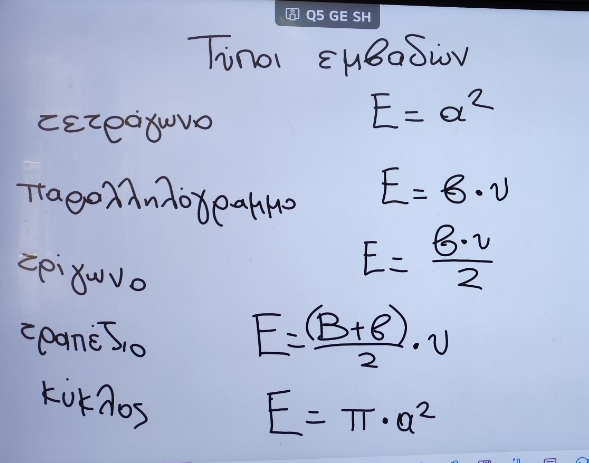 Q5 GE SH
Τύποι εμβαδών
τετράγωνο E = α²
παραλληλόγραμμο E = β·υ
τρίγωνο E = β·υ/2
τραπέζιο E = (Β+β)/2 · υ
κύκλος E = π·α²